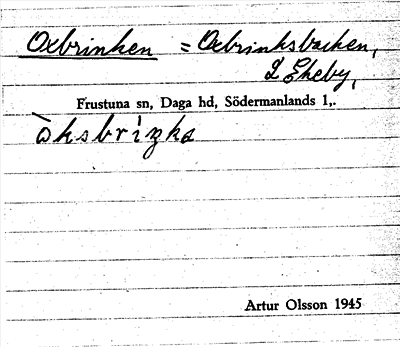 Oxbrinken = Oxbrinksbacken,
L Ekeby,
Frustuna sn, Daga hd, Södermanlands 1,.
òksbrìŋka
Artur Olsson 1945